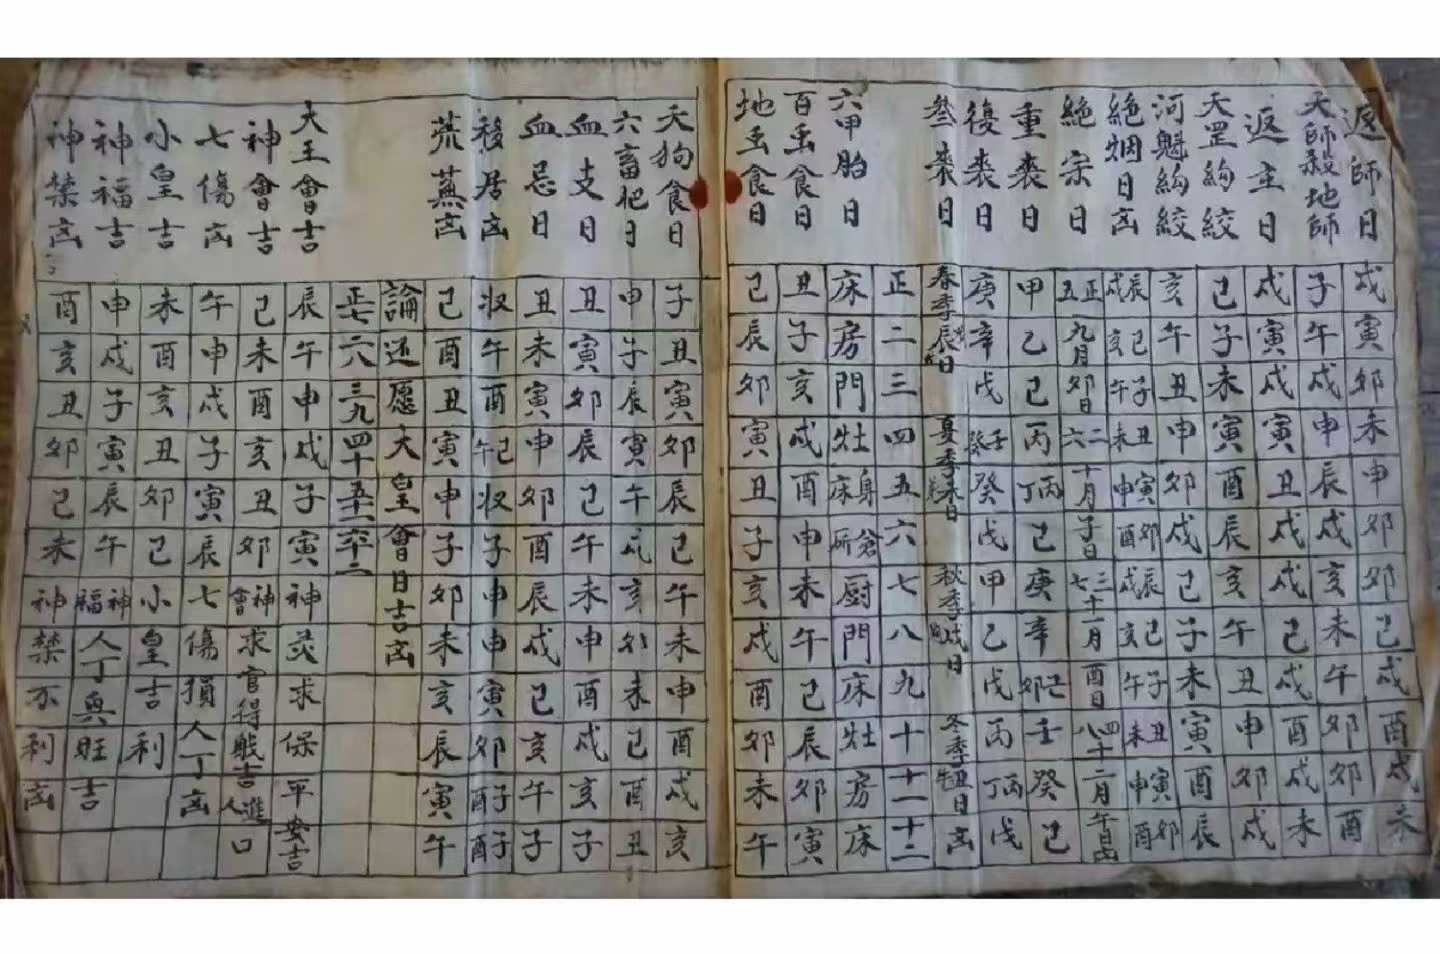 返師日 戌 寅 卯 未 申 卯 卯 己 戌 酉 戌 未
天師殺地師 子 午 戌 申 辰 戌 亥 未 午 卯 卯 酉
返主日 戌 寅 戌 寅 丑 戌 戌 己 戌 酉 戌 未
天罡絇絞 己 子 未 寅 酉 辰 亥 午 丑 申 卯 戌
河魁絇絞 亥 午 丑 申 卯 戌 己 子 未 寅 酉 辰
絶烟日凶 辰戌 己亥 子午 丑未 寅申 卯酉 辰戌 己亥 子午 丑未 寅申 卯酉
絶宗日 正五九月卯日 二六十月子日 三七十一月酉日 四八十二月午日凶
重喪日 甲 乙 己 丙 丙丁 己 庚 辛 卯 壬 癸 己
復喪日 庚 辛 戊 壬癸 癸 戊 甲 乙 戊 丙 丙丁 戊
叁喪日 春季辰日 夏季未日 秋季戌日 冬季丑日凶
正 二 三 四 五 六 七 八 九 十 十一 十二
六甲胎日 床 房 門 灶 身床 倉 厨 門 床 灶 房 床
百虫食日 丑 子 亥 戌 酉 申 未 午 己 辰 卯 寅
地虫食日 己 辰 卯 寅 丑 子 亥 戌 酉 卯 未 午
天狗食日 子 丑 寅 卯 辰 己 午 未 申 酉 戌 亥
六畜肥日 申 子 辰 寅 午 戌 亥 卯 未 己 酉 丑
血支日 丑 寅 卯 辰 己 午 未 申 酉 戌 亥 子
血忌日 丑 未 寅 申 卯 酉 辰 戌 己 亥 午 子
移居凶 收 午 酉 午己 收 子 申 申 寅 卯 子酉 子酉
荒蕪凶 己 酉 丑 寅 申 子 卯 未 亥 辰 寅 午
論还愿大皇會日吉凶
正七 二八 三九 四十 五十一 六十二
大王會吉 辰 午 申 戌 子 寅 神 求 保 平 安吉
神會吉 己 未 酉 亥 丑 卯 神會 求 官得 職吉 人進 口
七傷凶 午 申 戌 子 寅 辰 七 傷 損 人 丁 凶
小皇吉 未 酉 亥 丑 卯 己 小 皇 吉 利
神福吉 申 戌 子 寅 辰 午 神福 人 丁 興 旺 吉
神禁凶 酉 亥 丑 卯 己 未 神 禁 不 利 凶